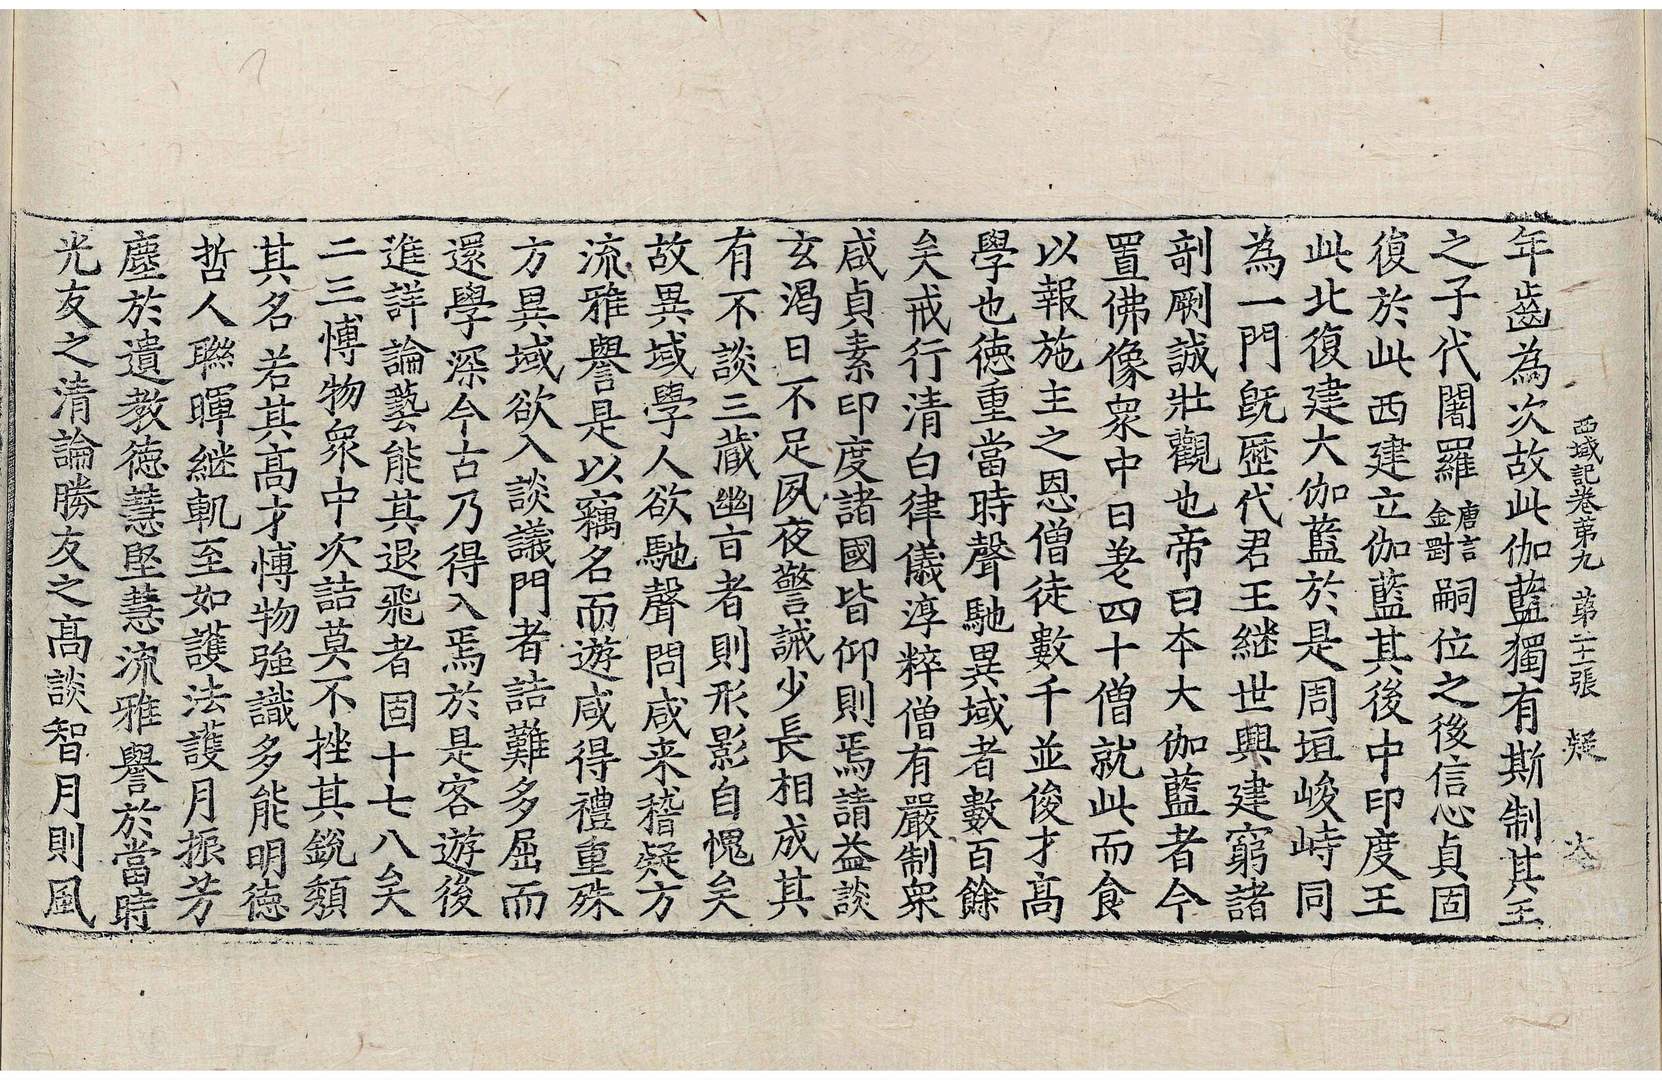 西域記卷第九　第二十張　疑
年齒為次故此伽藍獨有斯制其王
之子代闍羅唐言金剛嗣位之後信心貞固
復於此西建立伽藍其後中印度王
此北復建大伽藍於是周垣峻峙同
為一門旣歷代君王継世興建窮諸
剞劂誠壯觀也帝曰本大伽藍者今
置佛像衆中日差四十僧就此而食
以報施主之恩僧徒數千並俊才髙
學也徳重當時聲馳異域者數百餘
矣戒行清白律儀淳粹僧有嚴制衆
咸貞素印度諸國皆仰則焉請益談
玄渴日不足夙夜警誡少長相成其
有不談三藏幽旨者則形影自愧矣
故異域學人欲馳聲問咸来稽疑方
流雅譽是以竊名而遊咸得禮重殊
方異域欲入談議門者詰難多屈而
還學深今古乃得入焉於是客遊後
進詳論藝能其退飛者固十七八矣
二三博物衆中次詰莫不挫其銳頽
其名若其髙才博物強識多能明徳
哲人聯暉継軌至如護法護月振芳
塵於遺教徳慧堅慧流雅譽於當時
光友之清論勝友之髙談智月則風